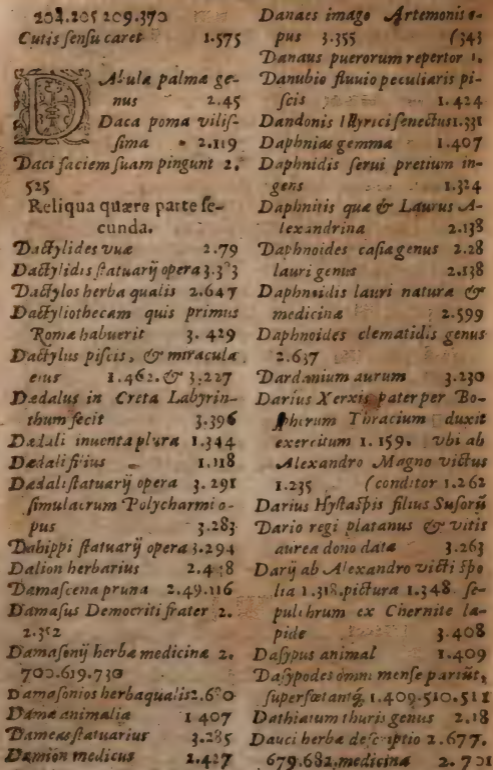 202.205 209.370
Cutis sensu caret 1.575
DAbula palmæ ge-
nus 2.45
Daca poma vilis-
sima 2.119
Daci faciem suam pingunt 2.
525
Reliqua quære parte se-
cunda.
Dactylides vuæ 2.79
Dactylidis statuarij opera
Dactylos herba qualis 2.647
Dactyliothecam quis primus
Romæ habuerit 3.429
Dactylus piscis, & miracula
eius 1.462. & 3.227
Dædalus in Creta Labyrin-
thum fecit 3.396
Dædali inuenta plura 1.344
Dædali filius 1.118
Dædali statuarij opera 3.291
simulacrum Polycharmi o-
pus 3.283
Dahippi statuarij opera 3.294
Dalion herbarius
Damascena pruna 2.49.116
Damasus Democriti frater 2.
Damasonij herbæ medicinæ 2.
700.619.730
Damasonios herba qualis
Damæ animalia 1 407
Dameas statuarius 3.285
Damion medicus 2.427
Danaes imago Artemonis o-
pus 3.355 (343
Danaus puerorum repertor 1.
Danubio fluuio peculiaris pi-
scis 1.424
Dandonis Illyrici senectus 1.331
Daphnias gemma 1.407
Daphnidis serui pretium in-
gens 1.324
Daphnitis quæ & Laurus A-
lexandrina 2.138
Daphnoides casiæ genus 2.28
lauri genus 2.538
Daphnidis lauri natura &
medicina 2.599
Daphnoides clematidis genus
2.637
Dardanium aurum 3.230
Darius Xerxis pater per Bo-
sphorum Thracium duxit
exercitum 1.159. vbi ab
Alexandro Magno victus
1.235 (conditor 1.262
Darius Hystaspis filius Susorũ
Dario regi platanus & vitis
aurea dono data 3.263
Darij ab Alexandro victi spo
lia 1.318. pictura 1.348. se-
pulchrum ex Chernite la-
pide 3.408
Dasypus animal 1.409
Dasypodes omni mense pariũt,
superfœtantq; 1.409.510.511
Dathiatum thuris genus 2.18
Dauci herbæ descriptio 2.677.
679.682. medicina 2.701